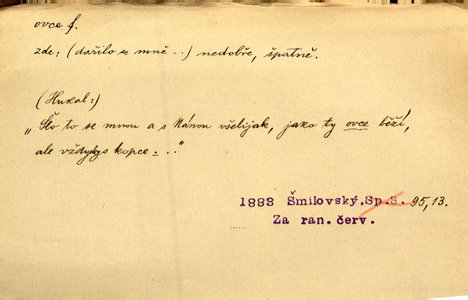 ovce f.
zde: (dařilo se mně ..) nedobře, špatně.
(Hukal:)
„Šlo to se mnou a s Nánou všelijak, jako ty ovce běží,
ale vždycky s kopce . . ."
1883 Šmilovský. Sp. 3. 95, 13.
Za ran. červ.